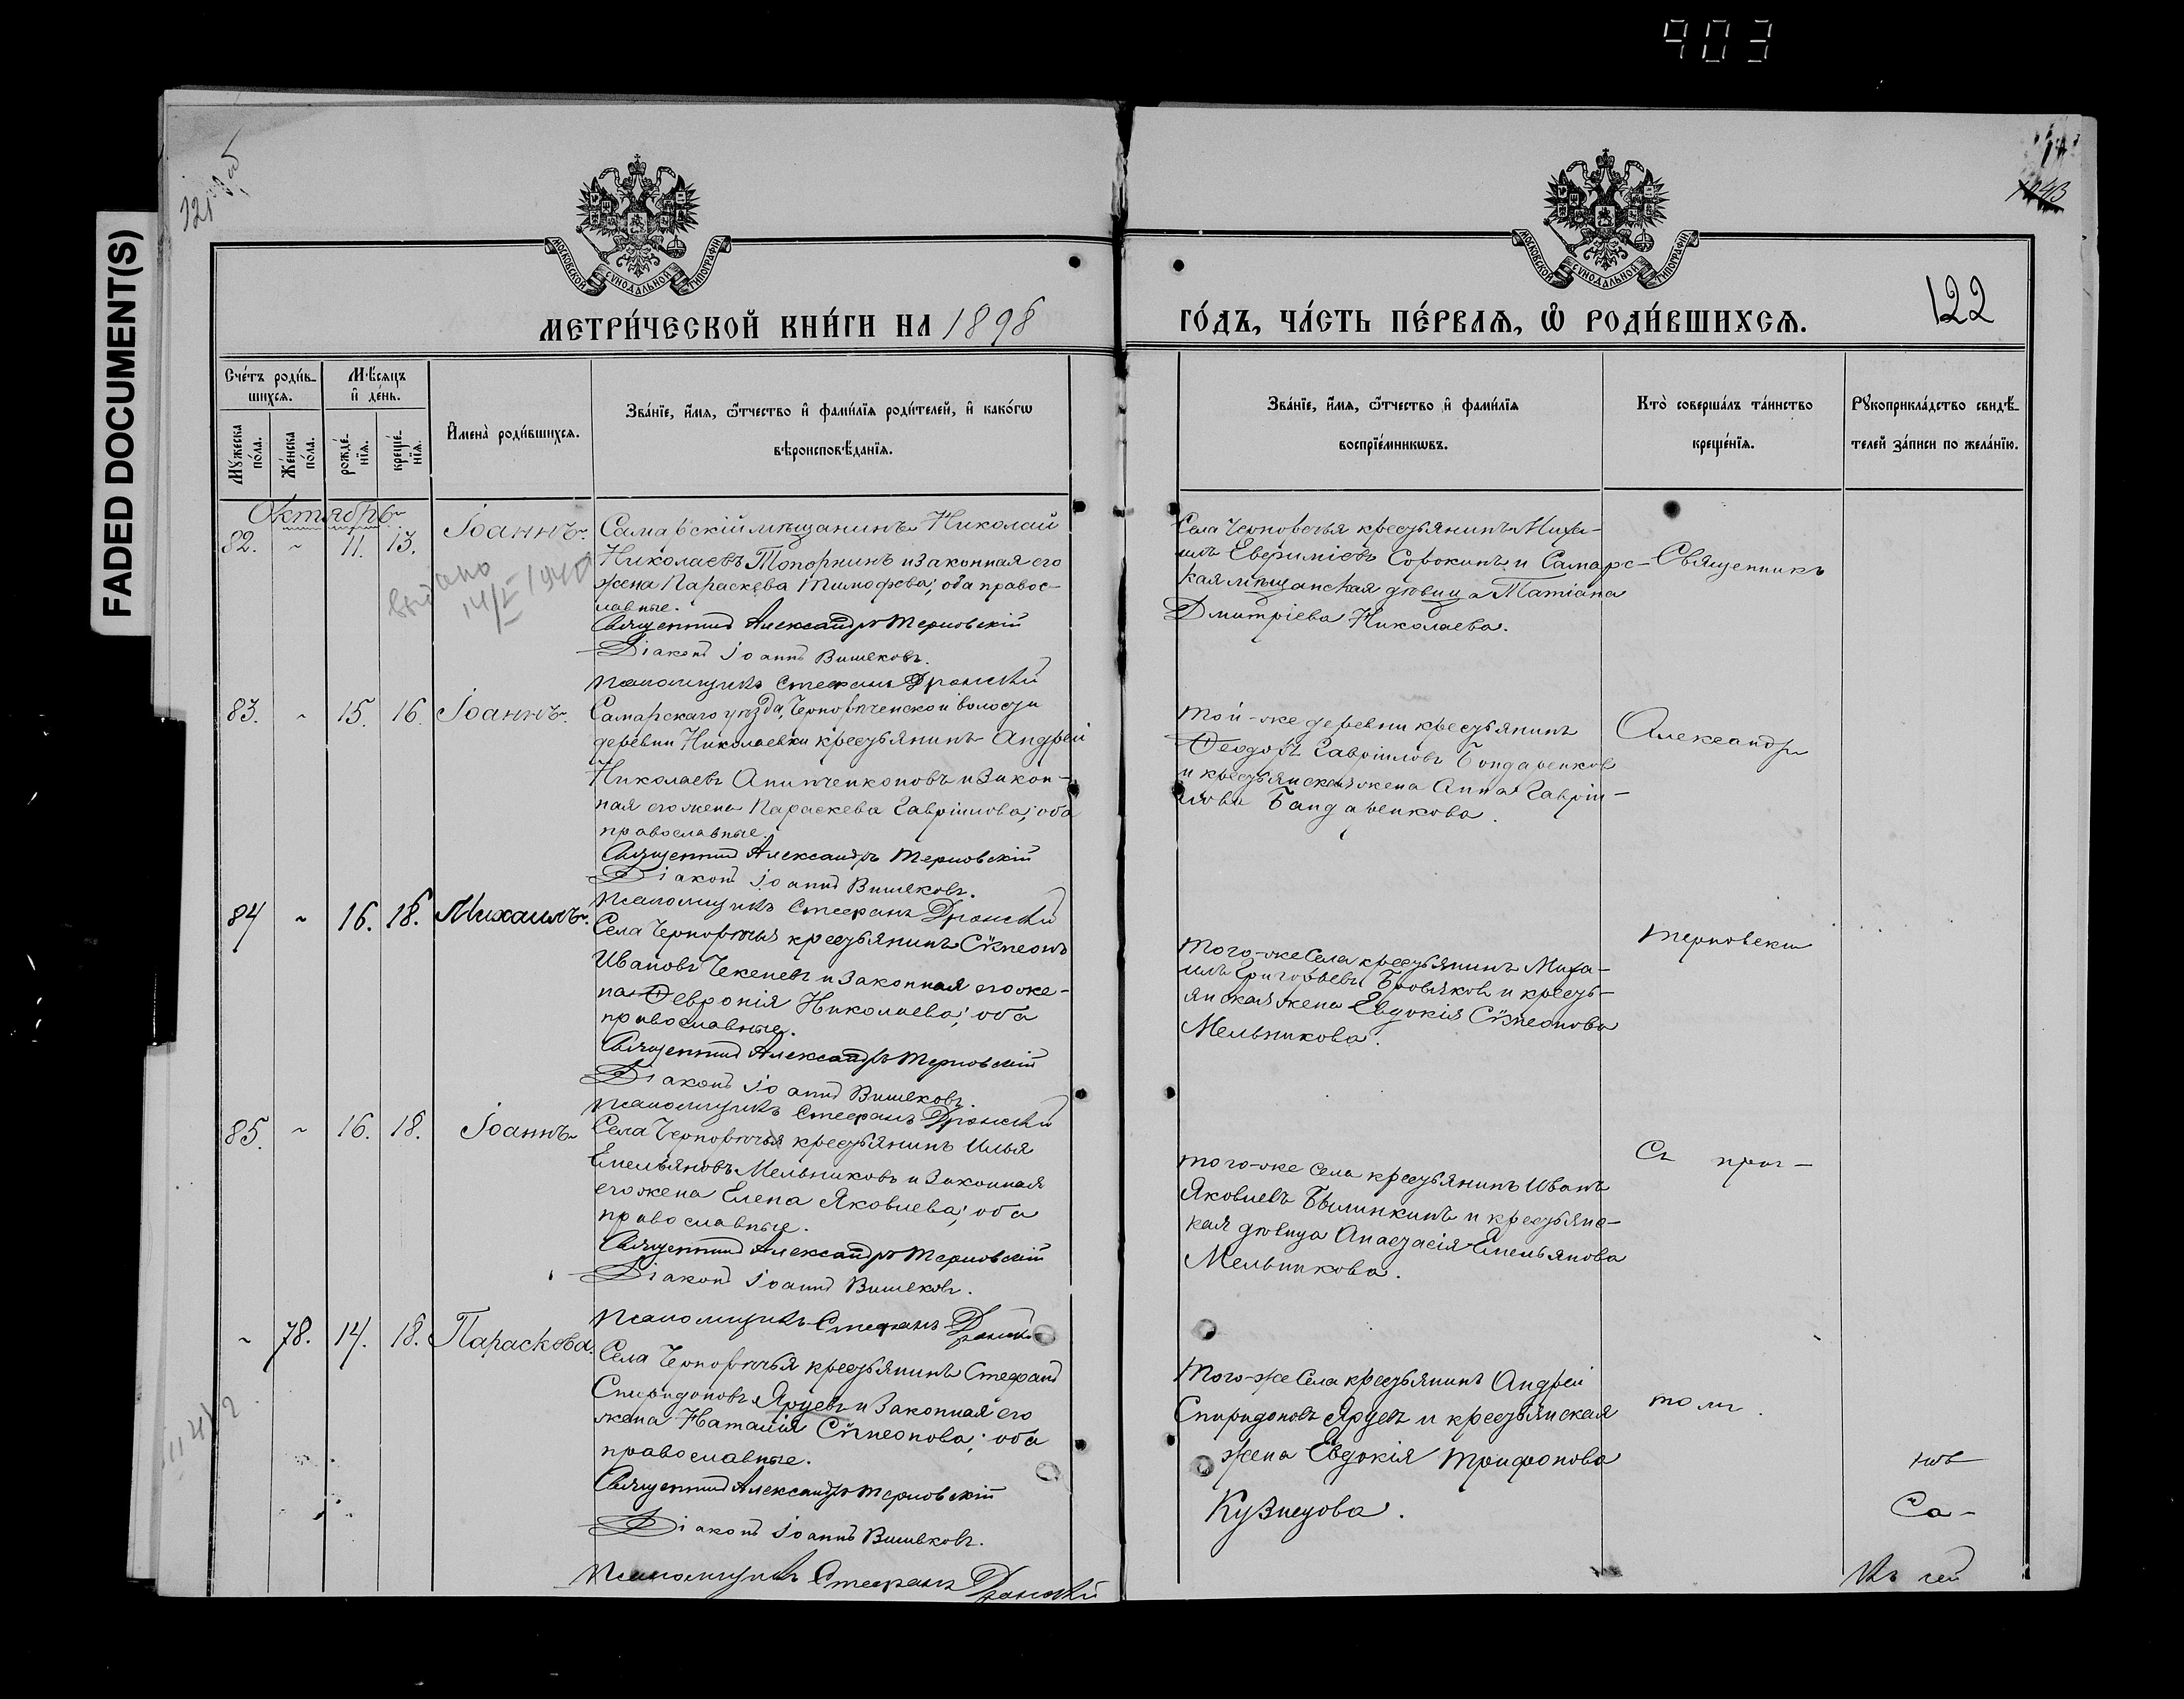 903
FADED DOCUMENT(S)
МОСКОВСКОЙ СѴНОДАЛЬНОЙ ТИПОГРАФІИ
МОСКОВСКОЙ СѴНОДАЛЬНОЙ ТИПОГРАФІИ
122
МЕТРИ́ЧЕСКОЙ КНИ́ГИ НА 1898
ГО́ДЪ, ЧА́СТЬ ПЕ́РВАѦ, Ѡ РОДИ́ВШИХСѦ.
Сче́тъ роди́вшихсѧ.
Мꙋ́жеска по́ла.
Же́нска по́ла.
Мѣ́сѧцъ и҆ де́нь.
рожде́нїѧ.
креще́нїѧ.
И҆мена̀ роди́вшихсѧ.
Зва́нїе, и҆́мѧ, ѻ҆́тчество и҆ фами́лїѧ роди́телей, и҆ како́гѡ
вѣроисповѣ́данїѧ.
Зва́нїе, и҆́мѧ, ѻ҆́тчество и҆ фами́лїѧ
воспрїе́мникѡвъ.
Кто̀ соверша́лъ та́инство
креще́нїѧ.
Рꙋкоприкла́дство свидѣ́-
телей за́писи по жела́нїю.
Октябрь
82. ~ 11. 13. Іоаннъ.
выдано 14/I 1940
Самарскій мѣщанинъ Николай
Николаевъ Топорнинъ и законная его
жена Параскева Тимофеева; оба правос-
лавные.
Священникъ Александръ Терновскій
Діаконъ Іоаннъ Вишняковъ.
Псаломщикъ Стефанъ
Села Чернорѣчья крестьянинъ Миха-
илъ Евфиміевъ Сорокинъ и Самарс-
кая мѣщанская дѣвица Татіана
Дмитріева Николаева.
Священникъ
83. ~ 15. 16. Іоаннъ.
Самарскаго уѣзда, Чернорѣченской волости
деревни Николаевки крестьянинъ Андрей
Николаевъ и закон-
ная его жена Параскева Гавріилова; оба
православные.
Священникъ Александръ Терновскій
Діаконъ Іоаннъ Вишняковъ.
Псаломщикъ Стефанъ
Той-же деревни крестьянинъ
Ѳеодоръ Гавріиловъ Бондаренковъ
и крестьянская жена Анна Гавріи-
лова Бандаренкова.
Александръ
84 ~ 16. 18. Михаилъ.
Села Чернорѣчья крестьянинъ Сѵмеонъ
Ивановъ Чекеневъ и законная его же-
на Ѳевронія Николаева; оба
православные.
Священникъ Александръ Терновскій
Діаконъ Іоаннъ Вишняковъ.
Псаломщикъ Стефанъ
Того-же Села крестьянинъ Миха-
илъ Григорьевъ и кресть-
янская жена Евдокія Сѵмеонова
Мельникова.
Терновскій
85. ~ 16. 18. Іоаннъ
Села Чернорѣчья крестьянинъ Илья
Емельяновъ Мельниковъ и законная
его жена Елена Яковлева; оба
православные.
Священникъ Александръ Терновскій
Діаконъ Іоаннъ Вишняковъ.
Псаломщикъ Стефанъ
того-же села крестьянинъ Иванъ
Яковлевъ Былинкинъ и крестьянс-
кая дѣвица Анастасія Емельянова
Мельникова.
Съ прич-
~ 78. 14. 18. Параскева.
Села Чернорѣчья крестьянинъ Стефанъ
Спиридоновъ Ярцевъ и законная его
жена Наталія Сѵмеонова; оба
православные.
Священникъ Александръ Терновскій
Діаконъ Іоаннъ Вишняковъ.
Псаломщикъ Стефанъ
Того-же Села крестьянинъ Андрей
Спиридоновъ Ярцевъ и крестьянская
жена Евдокія Трифонова
Кузнецова.
томъ.
Са-
Къ сей